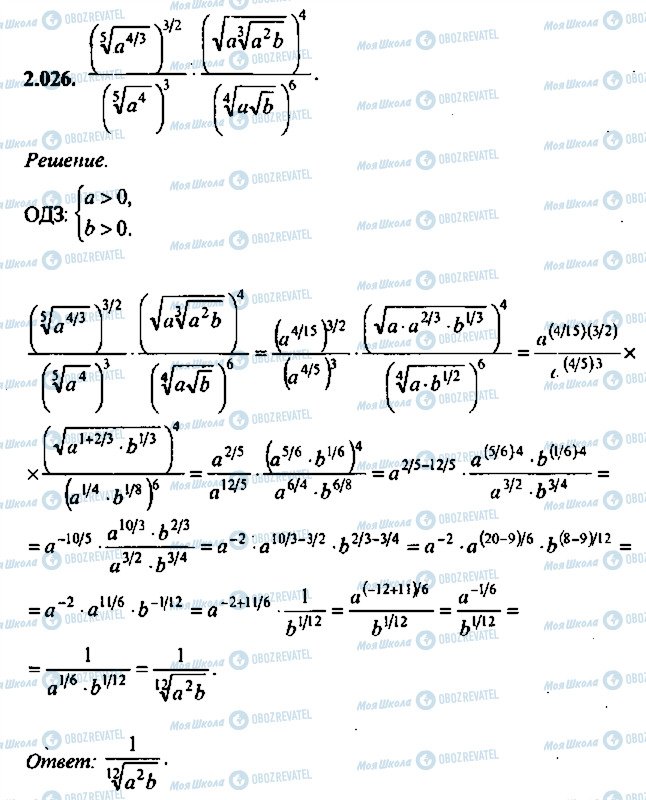 2.026. (⁵√(a^{4/3}))^{3/2} / (⁵√(a^4))^3 · (√(a ³√(a^2 b)))^4 / (⁴√(a√b))^6 .
Решение.
ОДЗ: { a > 0,
b > 0.
(⁵√(a^{4/3}))^{3/2} / (⁵√(a^4))^3 · (√(a ³√(a^2 b)))^4 / (⁴√(a√b))^6 = (a^{4/15})^{3/2} / (a^{4/5})^3 · (√(a · a^{2/3} · b^{1/3}))^4 / (⁴√(a · b^{1/2}))^6 = a^{(4/15)(3/2)} / a^{(4/5)·3} ×
× (√(a^{1+2/3} · b^{1/3}))^4 / (a^{1/4} · b^{1/8})^6 = a^{2/5} / a^{12/5} · (a^{5/6} · b^{1/6})^4 / (a^{6/4} · b^{6/8}) = a^{2/5−12/5} · a^{(5/6)·4} · b^{(1/6)·4} / (a^{3/2} · b^{3/4}) =
= a^{−10/5} · a^{10/3} · b^{2/3} / (a^{3/2} · b^{3/4}) = a^{−2} · a^{10/3−3/2} · b^{2/3−3/4} = a^{−2} · a^{(20−9)/6} · b^{(8−9)/12} =
= a^{−2} · a^{11/6} · b^{−1/12} = a^{−2+11/6} · 1 / b^{1/12} = a^{(−12+11)/6} / b^{1/12} = a^{−1/6} / b^{1/12} =
= 1 / (a^{1/6} · b^{1/12}) = 1 / ¹²√(a^2 b) .
Ответ: 1 / ¹²√(a^2 b) .
Моя Школа OBOZREVATEL